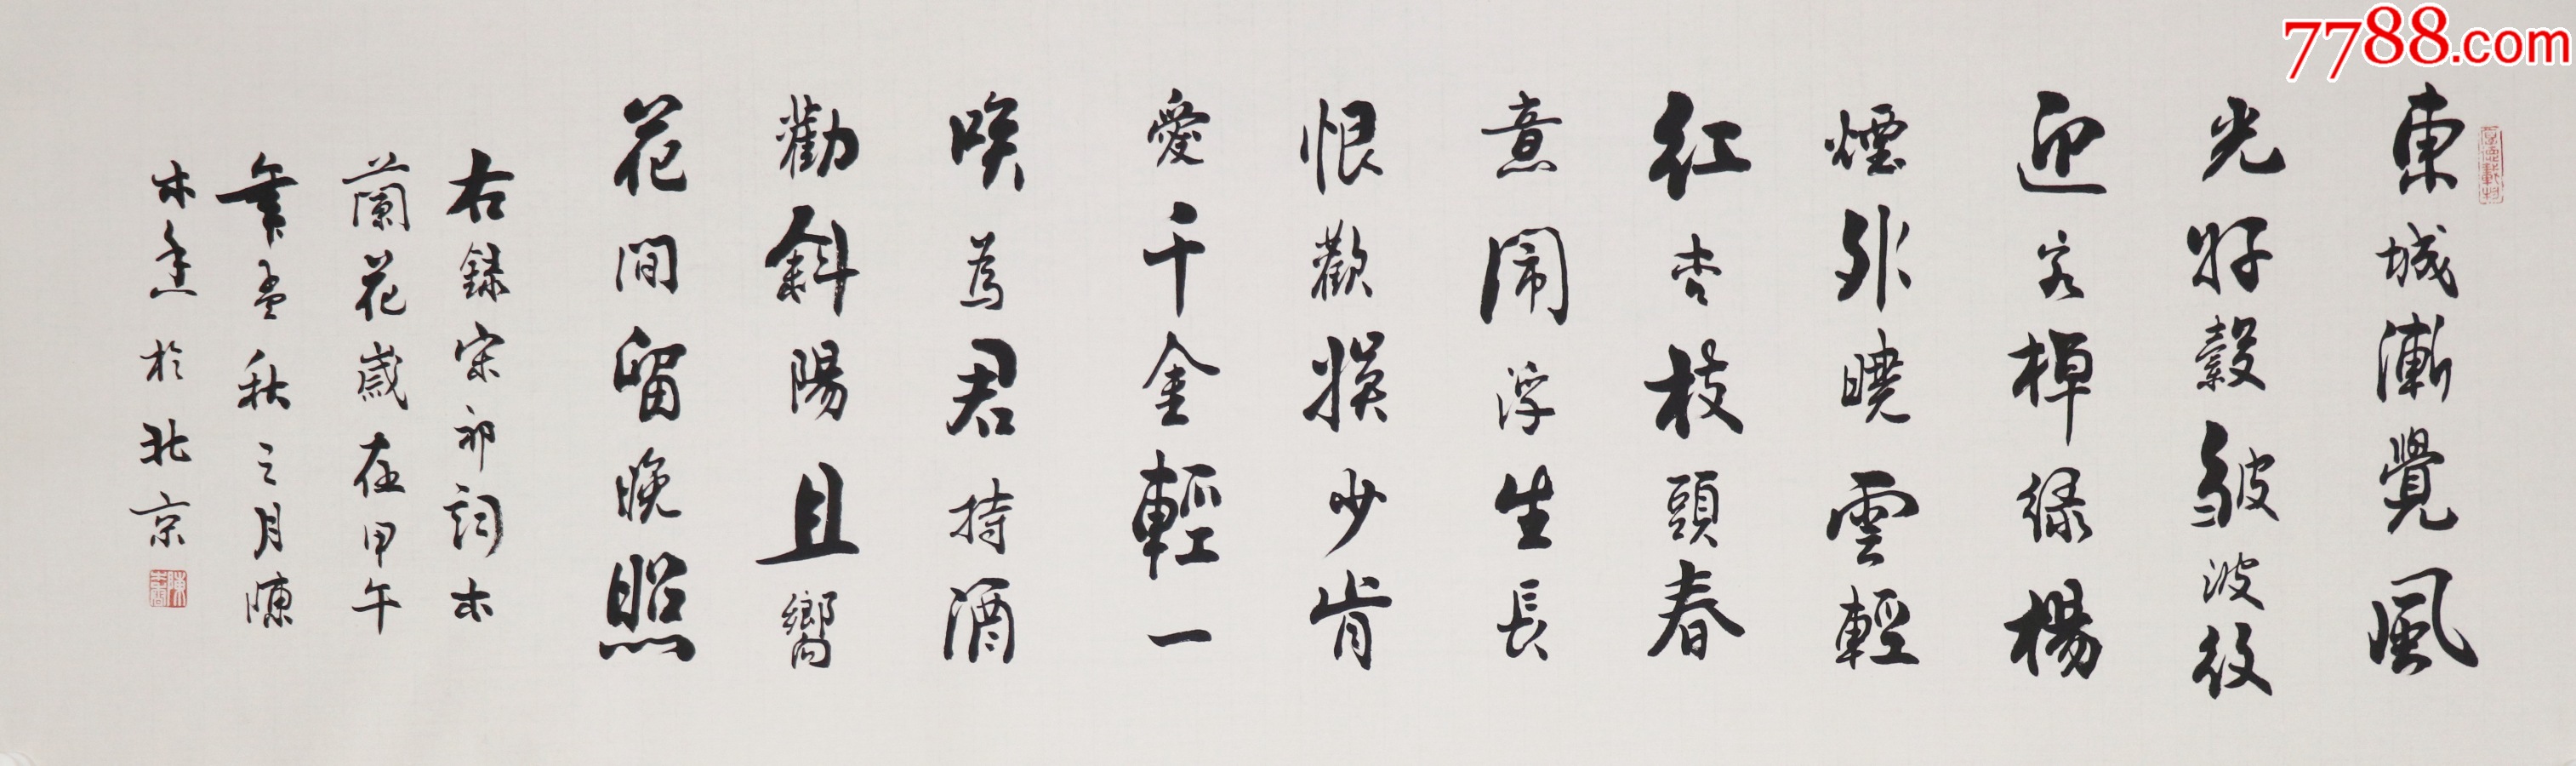 7788.com
厚德載物
東城漸覺風
光好縠皺波紋
迎客棹綠楊
煙外曉雲輕
紅杏枝頭春
意鬧浮生長
恨歡娛少肯
愛千金輕一
咲為君持酒
勸斜陽且嚮
花間留晚照
右錄宋祁詞木
蘭花歲在甲午
年孟秋之月陳
木香於北京